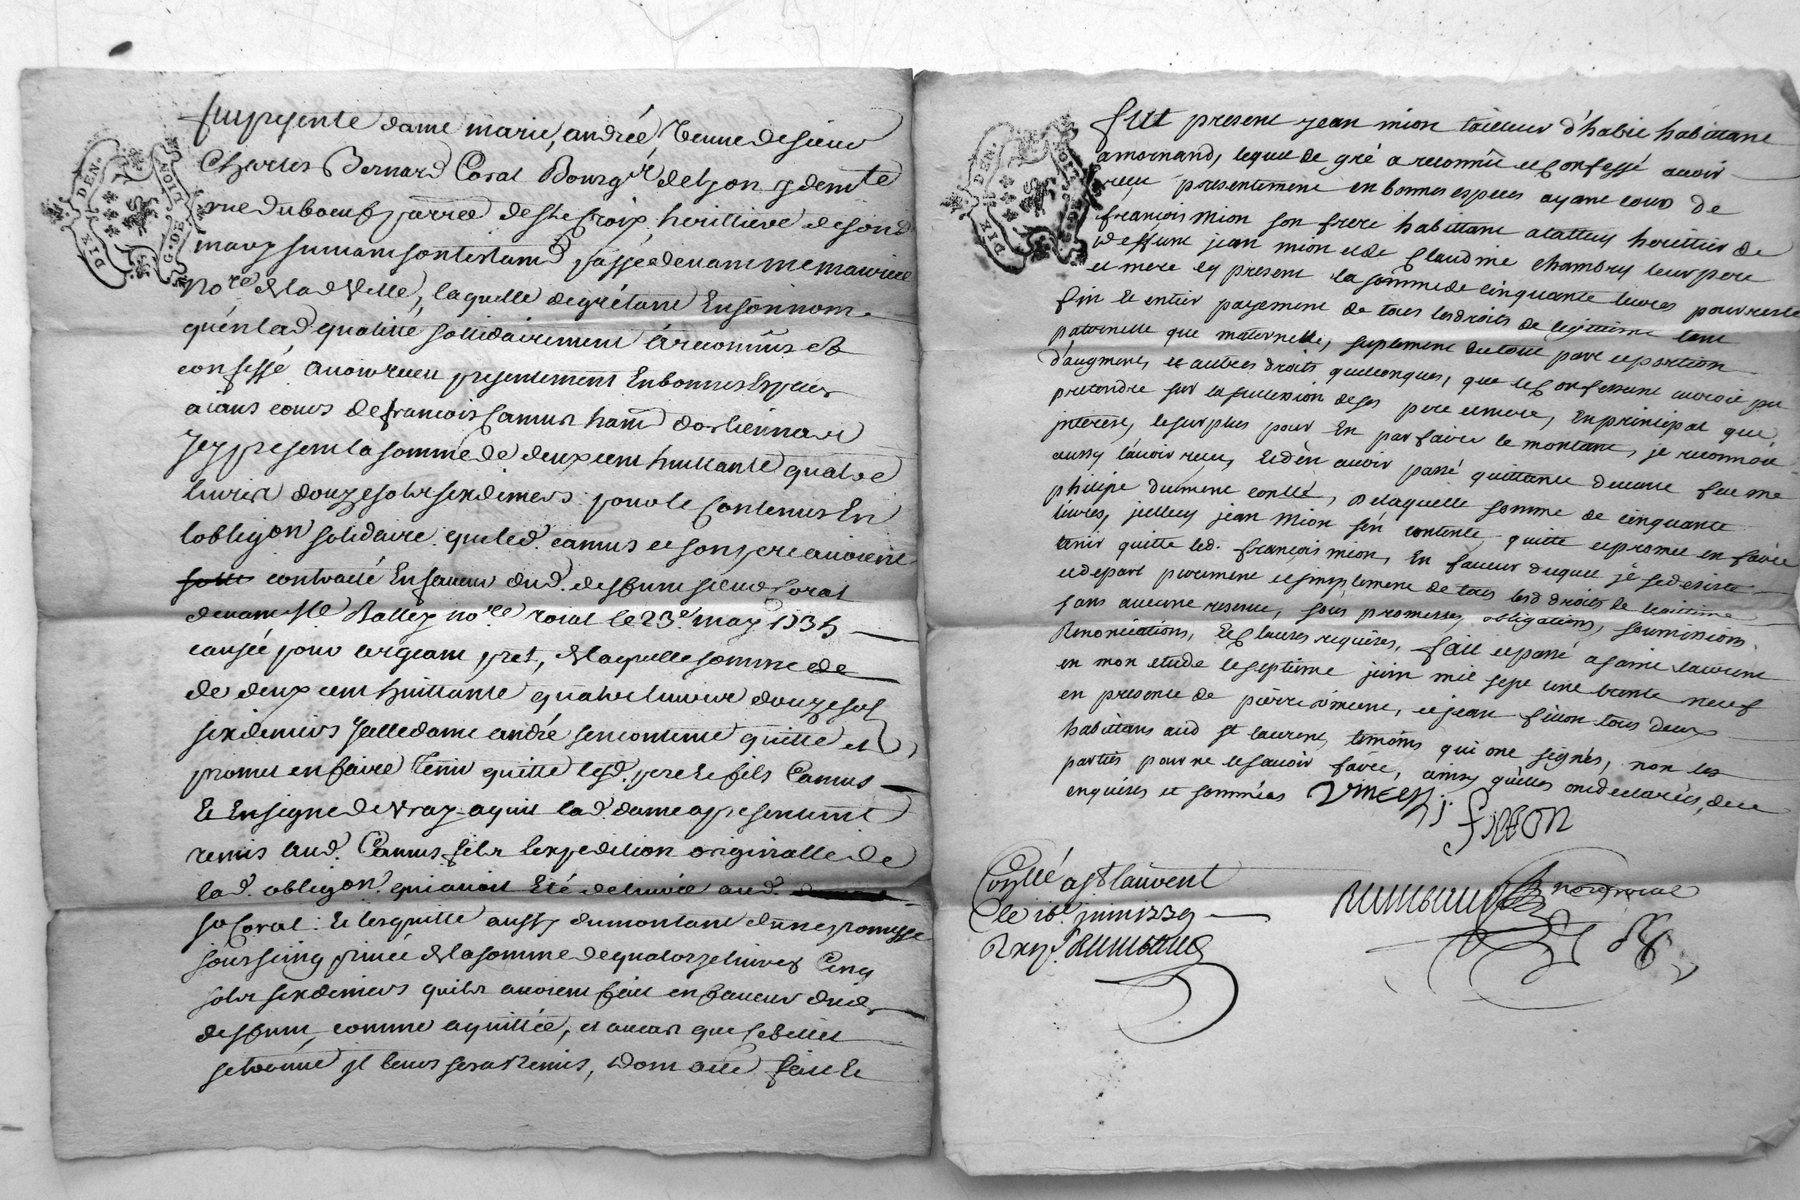 fut presente dame marie andrée veuve de sieur
Charles Bernard Coral Bourg.r de lyon y demte
rue du boeuf parroe de ste Croix, heritiere de son d
mary suivant son testamt passé devant me maurice
no.re de lad ville, laquelle de gré tant en son nom
qu'en lad qualitté sollidairement a reconnûs et
confessé avoir receu presentement en bonnes especes
aïans cours de francois Camus hant d'orlienna et
icy present la somme de deux cent huittante quatre
livres douze sols six deniers pour le contenus en
l'obligon solidaire que led. camus et son pere avoient
contracté en faveur dud. deffunt sieur Coral
devant me Rallet no.re roial le 23e. may 1735
causée pour argeant pret, de laquelle somme de
de deux cent huittante quatre livres douze sols
six deniers jcelle dame andré s'en contente quitte et
promet en faire tenir quitte lesd. pere et fils Camus
Et en signe de vray aquit lad. dame a presentemt
remis aud. Camus fils l'expedition originalle de
lad. obligon. qui avoit été delivrée aud.
sr Coral : Et les quitte aussy du montant d'une promesse
sous seing privée de la somme de quatorze livres cinq
sols six deniers qu'ils avoient fait en faveur dud
deffunt, comme aquittée, et au cas que le billet
se trouve il leurs sera remis, dont acte fait et
fut present jean mion tailleur d'habit habittant
a mornand, lequel de gré a reconnû et confessé avoir
reçu presentement en bonnes especes ayant cours de
françois mion son frere habittant a heritier de
deffunt jean mion et de Claudine chambry leur pere
et mere icy present la somme de cinquante livres pour reste
fin et entier payement de tous les droits de legitime tant
paternelle que maternelle, suplement de tout part et portion
d'augment, et autres droits quelconques, que le confessant auroit pu
pretendre sur la succession de ses pere et mere, en principal que
interest, le surplus pour en parfaire le montant, je reconnoit
aussy l'avoir reçu, et d'en avoir passé quittance devant feu me
philipe dument contlé, de laquelle somme de cinquante
livres, jcelluy jean mion s'en contente quitte et promet en faire
tenir quitte led. françois mion, en faveur duquel je se desiste
et depart purement et simplement de tous lesd droits de legitime
sans aucune reserve, sous promesses, obligations, soumissions
Renonciations, et clauses requises, fait et passé a saint laurent
en mon etude le septieme juin mil sept cent trente neuf
en presence de pierre vincent, et jean fillon tous deux
habittans aud st laurent, temoins qui ont signés, non les
parties pour ne le savoir faire, ainsy qu'elles ont declarées, de ce
enquises et sommées Vincent j. fillon
Contlé a st laurent
le 16e. juin 1739